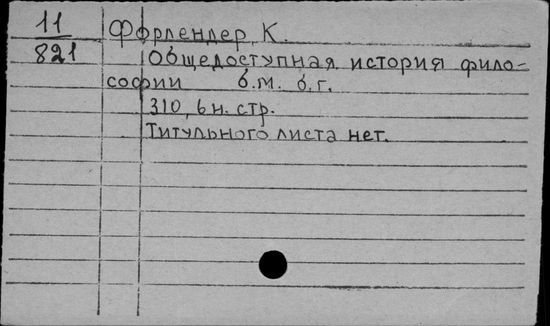 11 Форлендер, К.
821 Общедоступная история фило-
софии б.м. б.г.
310, 6 н. стр.
Титульного листа нет.